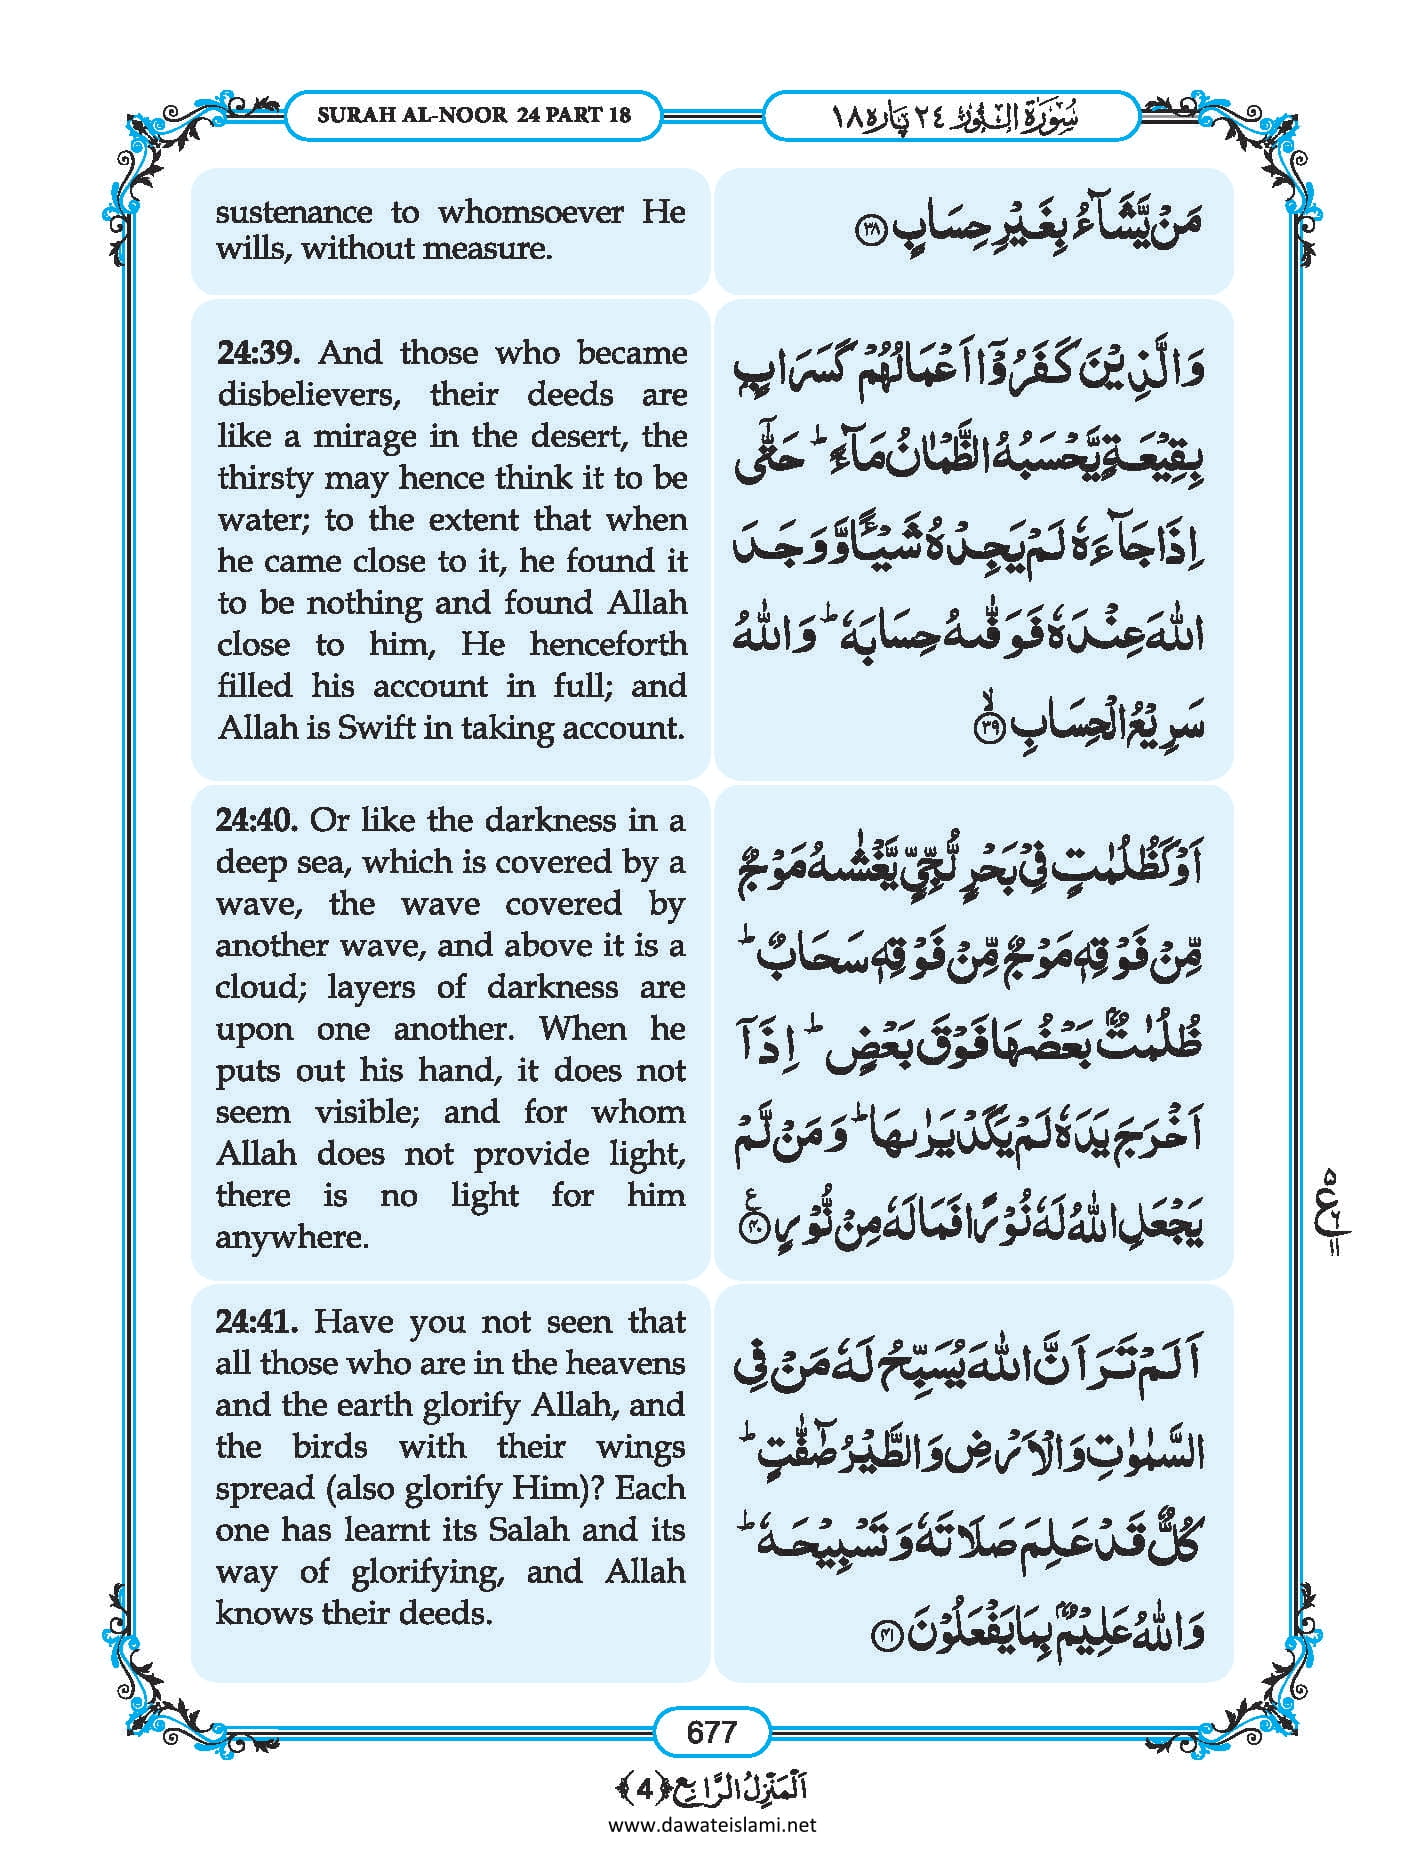 SURAH AL-NOOR 24 PART 18
سُوۡرَةُ الـنُّوۡر ٢٤ پَارَه ١٨
sustenance to whomsoever He
wills, without measure.
مَنۡ يَّشَآءُ بِغَيۡرِ حِسَابٍ ﴿۳۸﴾
24:39. And those who became
disbelievers, their deeds are
like a mirage in the desert, the
thirsty may hence think it to be
water; to the extent that when
he came close to it, he found it
to be nothing and found Allah
close to him, He henceforth
filled his account in full; and
Allah is Swift in taking account.
وَالَّذِيۡنَ كَفَرُوۡۤا اَعۡمَالُهُمۡ كَسَرَابٍۭ
بِقِيۡعَةٍ يَّحۡسَبُهُ الظَّمۡاٰنُ مَآءً ؕ حَتّٰۤى
اِذَا جَآءَهٗ لَمۡ يَجِدۡهُ شَيۡــًٔا وَّ وَجَدَ
اللّٰهَ عِنۡدَهٗ فَوَفّٰٮهُ حِسَابَهٗ ؕ وَاللّٰهُ
سَرِيۡعُ الۡحِسَابِ ۙ﴿۳۹﴾
24:40. Or like the darkness in a
deep sea, which is covered by a
wave, the wave covered by
another wave, and above it is a
cloud; layers of darkness are
upon one another. When he
puts out his hand, it does not
seem visible; and for whom
Allah does not provide light,
there is no light for him
anywhere.
اَوۡ كَظُلُمٰتٍ فِىۡ بَحۡرٍ لُّجِّىٍّ يَّغۡشٰٮهُ مَوۡجٌ
مِّنۡ فَوۡقِهٖ مَوۡجٌ مِّنۡ فَوۡقِهٖ سَحَابٌ ؕ
ظُلُمٰتٌۢ بَعۡضُهَا فَوۡقَ بَعۡضٍ ؕ اِذَاۤ
اَخۡرَجَ يَدَهٗ لَمۡ يَكَدۡ يَرٰٮهَا ؕ وَمَنۡ لَّمۡ
يَجۡعَلِ اللّٰهُ لَهٗ نُوۡرًا فَمَا لَهٗ مِنۡ نُّوۡرٍ ﴿۴۰﴾ ع
۵
ع ٦
١١
24:41. Have you not seen that
all those who are in the heavens
and the earth glorify Allah, and
the birds with their wings
spread (also glorify Him)? Each
one has learnt its Salah and its
way of glorifying, and Allah
knows their deeds.
اَلَمۡ تَرَ اَنَّ اللّٰهَ يُسَبِّحُ لَهٗ مَنۡ فِى
السَّمٰوٰتِ وَالۡاَرۡضِ وَالطَّيۡرُ صٰٓفّٰتٍ ؕ
كُلٌّ قَدۡ عَلِمَ صَلَاتَهٗ وَتَسۡبِيۡحَهٗ ؕ
وَاللّٰهُ عَلِيۡمٌۢ بِمَا يَفۡعَلُوۡنَ ﴿۴۱﴾
677
اَلۡمَنۡزِلُ الرَّابِع ﴿4﴾
www.dawateislami.net